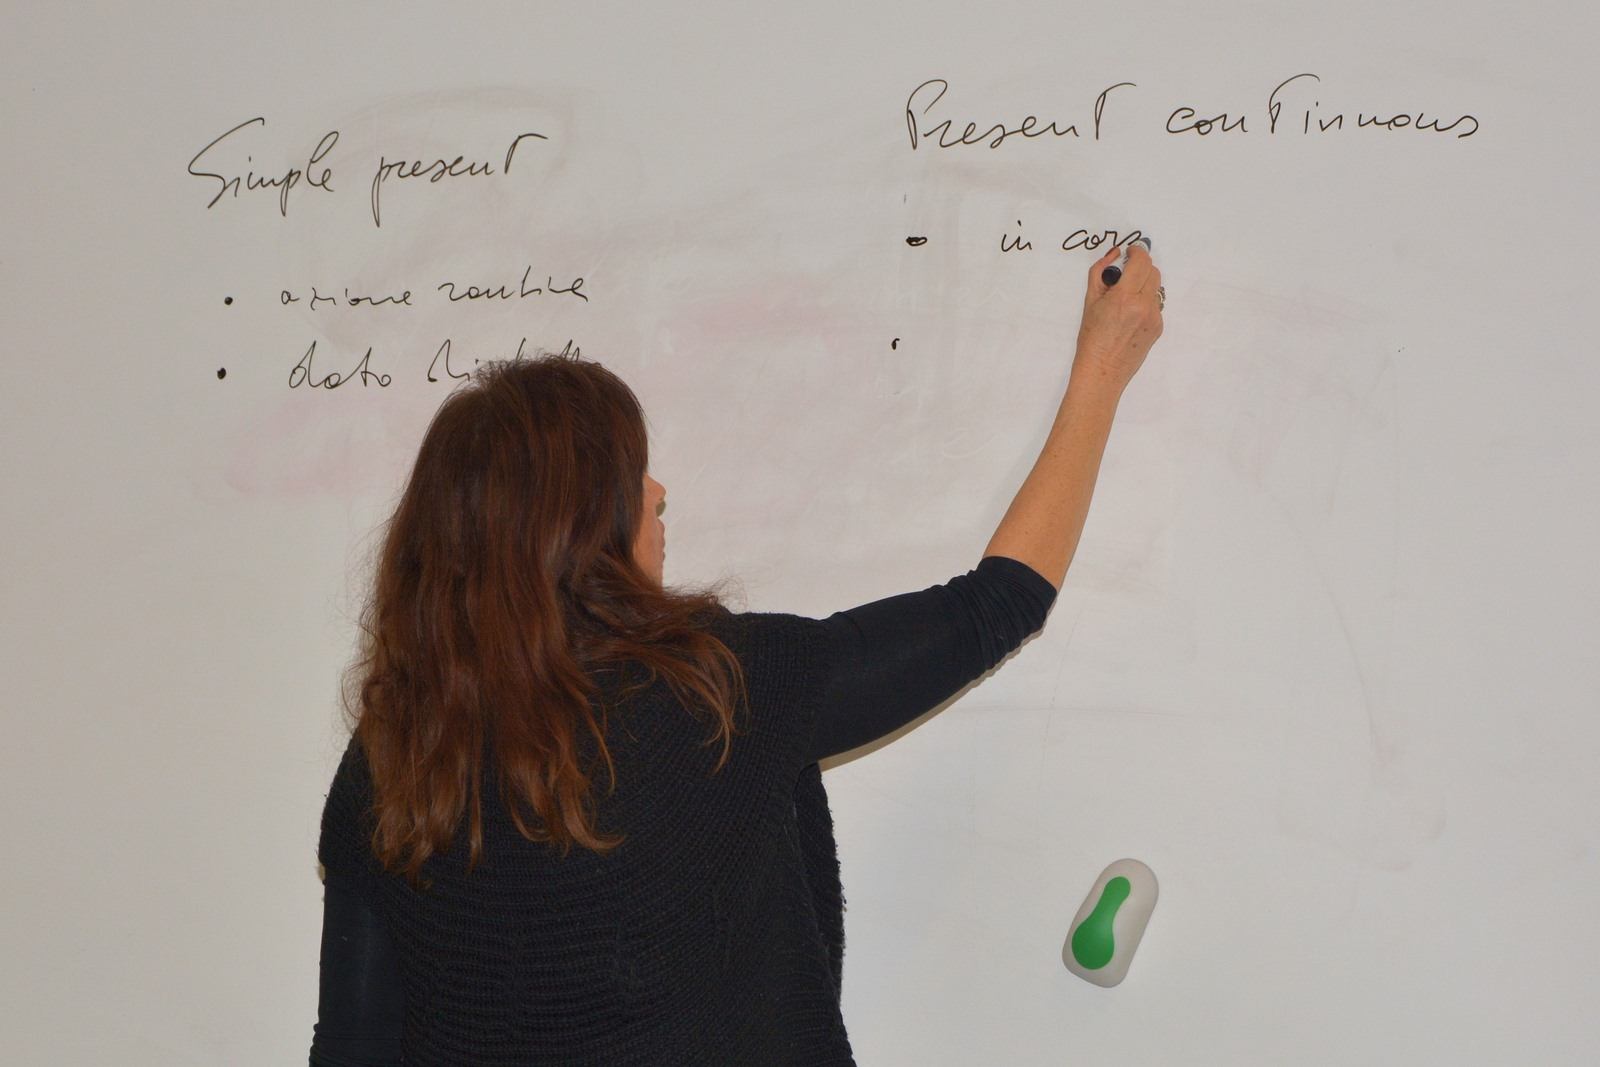 Simple present
• azione routine
• dato
Present continuous
• in cors
•